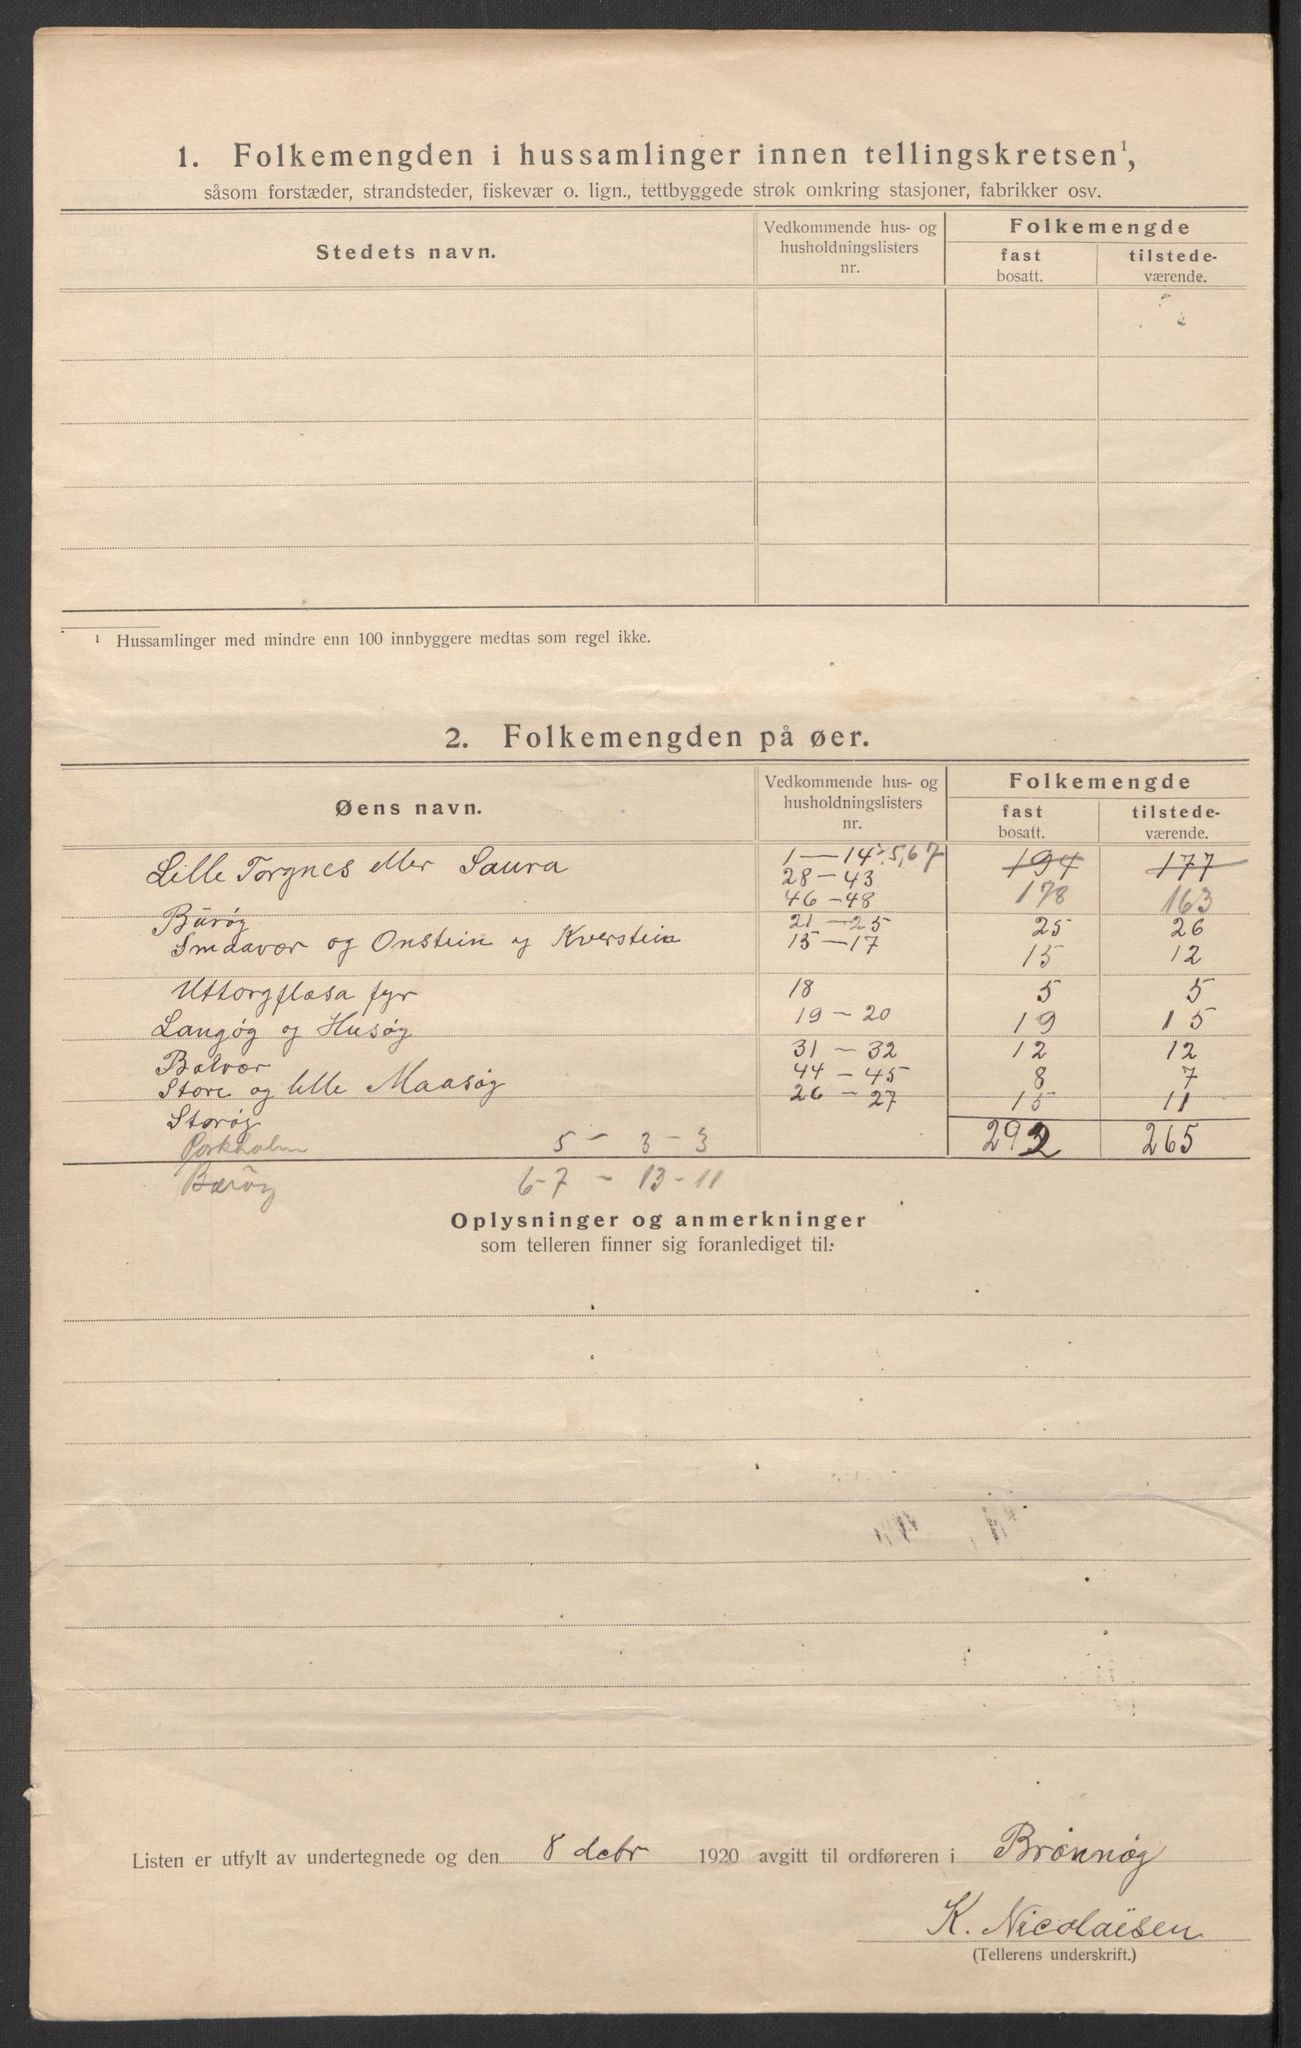 1. Folkemengden i hussamlinger innen tellingskretsen¹,
såsom forstæder, strandsteder, fiskevær o. lign., tettbyggede strøk omkring stasjoner, fabrikker osv.
Stedets navn. Vedkommende hus- og husholdningslisters nr. Folkemengde
fast bosatt. tilstede-værende.
¹ Hussamlinger med mindre enn 100 innbyggere medtas som regel ikke.
2. Folkemengden på øer.
Øens navn. Vedkommende hus- og husholdningslisters nr. Folkemengde
fast bosatt. tilstede-værende.
Lille Torgnes eller Saura 1—14 5,67 194 177
28-43
46-48 178 163
Burøy 21-25 25 26
Smaavær og Onstein og Kverstein 15-17 15 12
Uttorgflæsa fyr 18 5 5
Langøy og Husøy 19-20 19 15
Balvær 31-32 12 12
Store og lille Maasøy 44-45 8 7
Storøy 26-27 15 11
292 265
5 - 3 - 3
Bærøy 6-7 - 13-11
Oplysninger og anmerkninger
som telleren finner sig foranlediget til:
Listen er utfylt av undertegnede og den 8 debr 1920 avgitt til ordføreren i Brønnøy
K. Nicolaisen
(Tellerens underskrift.)